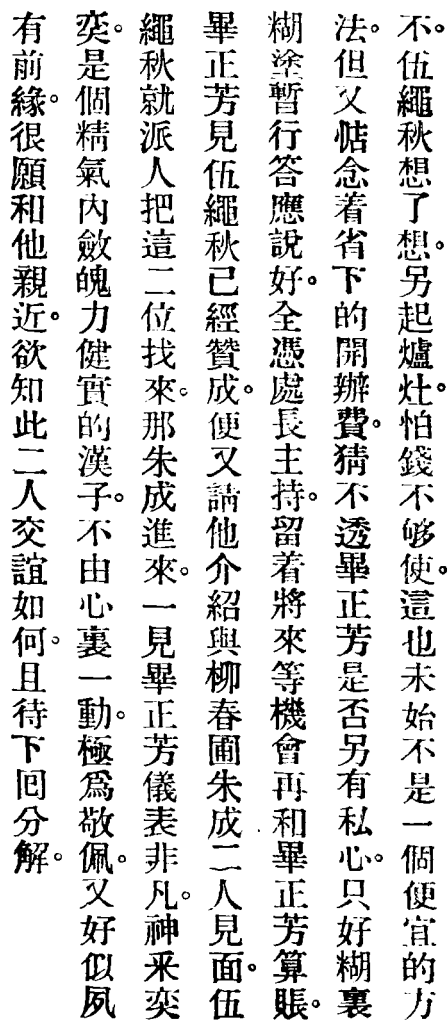 不。伍繩秋想了想。另起爐灶。怕錢不够使。這也未始不是一個便宜的方
法。但又惦念着省下的開辦費。猜不透畢正芳是否另有私心。只好糊裏
糊塗暫行答應說好。全憑處長主持。留着將來等機會再和畢正芳算賬。
畢正芳見伍繩秋已經贊成。便又請他介紹與柳春圃朱成二人見面。伍
繩秋就派人把這二位找來。那朱成進來。一見畢正芳儀表非凡。神釆奕
奕。是個精氣內斂魄力健實的漢子。不由心裏一動。極爲敬佩。又好似夙
有前緣。很願和他親近。欲知此二人交誼如何。且待下囘分解。